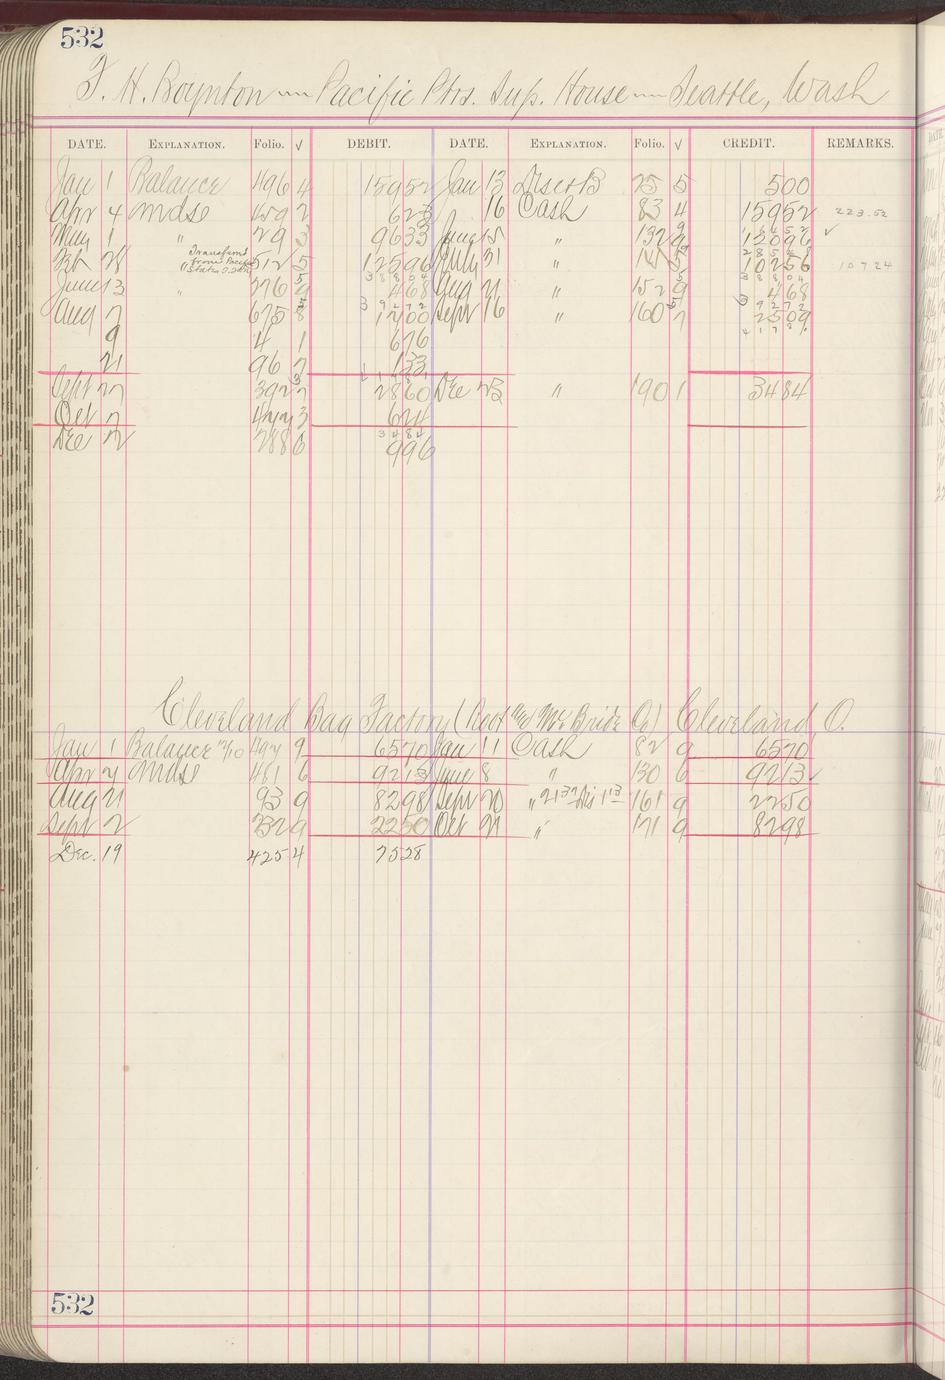 532
F. H. Boynton — Pacific Ptrs. Sup. House — Seattle, Wash
DATE. EXPLANATION. Folio. √ DEBIT. DATE. EXPLANATION. Folio. √ CREDIT. REMARKS.
Jan 1 Balance 496 4 15952 Jan 13 25 5 500
Apr 4 Mdse 459 2 623 16 Cash 83 4 15952 223.52
May 1 " 29 3 9633 June 15 " 132 12096 ✓
28 " Transferred from Pacific States 512 5 12596 July 31 " 147 10256 10724
June 13 " 276 468 Aug 21 " 152 9 468
Aug 7 675 8 1200 Sept 16 " 160 7 2509
9 4 1 676
21 96 7 133
Sept 27 392 7 2860 Dec 23 " 190 1 3484
Oct 7 3 624
3484
Dec 12 288 6 996
Cleveland Bag Factory (Root & McBride Co) Cleveland O.
Jan 1 Balance 494 9 6570 Jan 11 Cash 82 9 6570
Apr 4 Mdse 481 6 9213 June 8 " 130 6 9213 ✓
Aug 21 93 9 8298 Sept 20 " 21 37 Dis 1 13 161 9 2250
Sept 2 232 9 2250 Oct 21 " 171 9 8298
Dec. 19 425 4 7528
532